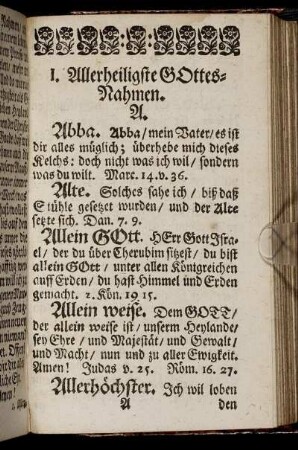 I. Allerheiligste GOttes-
Nahmen.
A.
Abba. Abba/ mein Vater/ es ist
dir alles müglich; überhebe mich dieses
Kelchs: doch nicht was ich wil/ sondern
was du wilt. Marc. 14. v. 36.
Alte. Solches sahe ich/ biß daß
Stühle gesetzet wurden/ und der Alte
setzte sich. Dan. 7. 9.
Allein GOtt. HErr Gott Isra-
el/ der du über Cherubim sitzest/ du bist
allein GOtt/ unter allen Königreichen
auff Erden/ du hast Himmel und Erden
gemacht. 2. Kön. 19. 15.
Allein weise. Dem GOTT/
der allein weise ist/ unserm Heylande/
sey Ehre/ und Majestät/ und Gewalt/
und Macht/ nun und zu aller Ewigkeit.
Amen! Judas v. 25. Röm. 16. 27.
Allerhöchster. Ich wil loben
A den